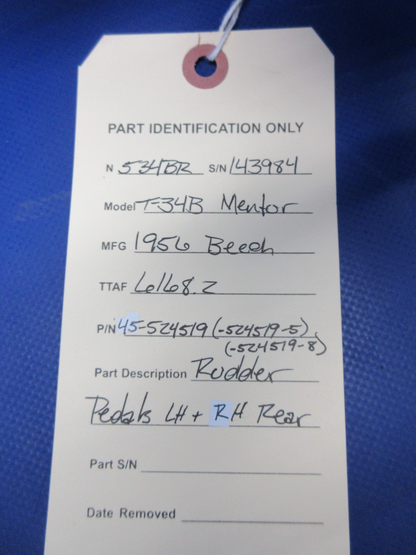 PART IDENTIFICATION ONLY
N 534BR S/N 143984
Model T-34B Mentor
MFG 1956 Beech
TTAF 6168.2
P/N 45-524519 (-524519-5),
(-524519-8)
Part Description Rudder
Pedals LH + RH Rear
Part S/N
Date Removed